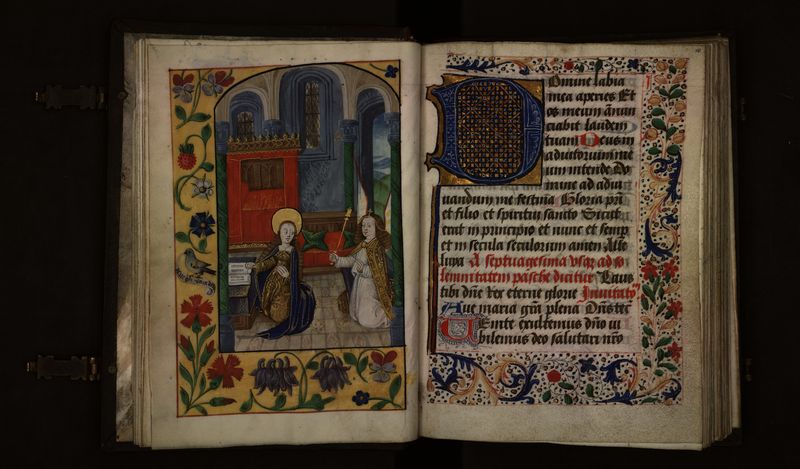 Domine labia
mea aperies Et
os meum ānun
ciabit laudem
tuam Deus in
adiutorium me
um intende Do
mine ad adiu
uandum me festina Gloria pr̄i
et filio et spiritui sancto Sicut
erat in principio et nunc et semp
et in secula seculorum amen Alle
luya A septuagesima vsqz ad so
lemnitatem pasche dicitur Laus
tibi dn̄e Rex eterne glorie Inuitatoᵐ
Aue maria gr̄a plena Dn̄s tec
Uenite exultemus dn̄o iu
bilemus deo salutari nr̄o